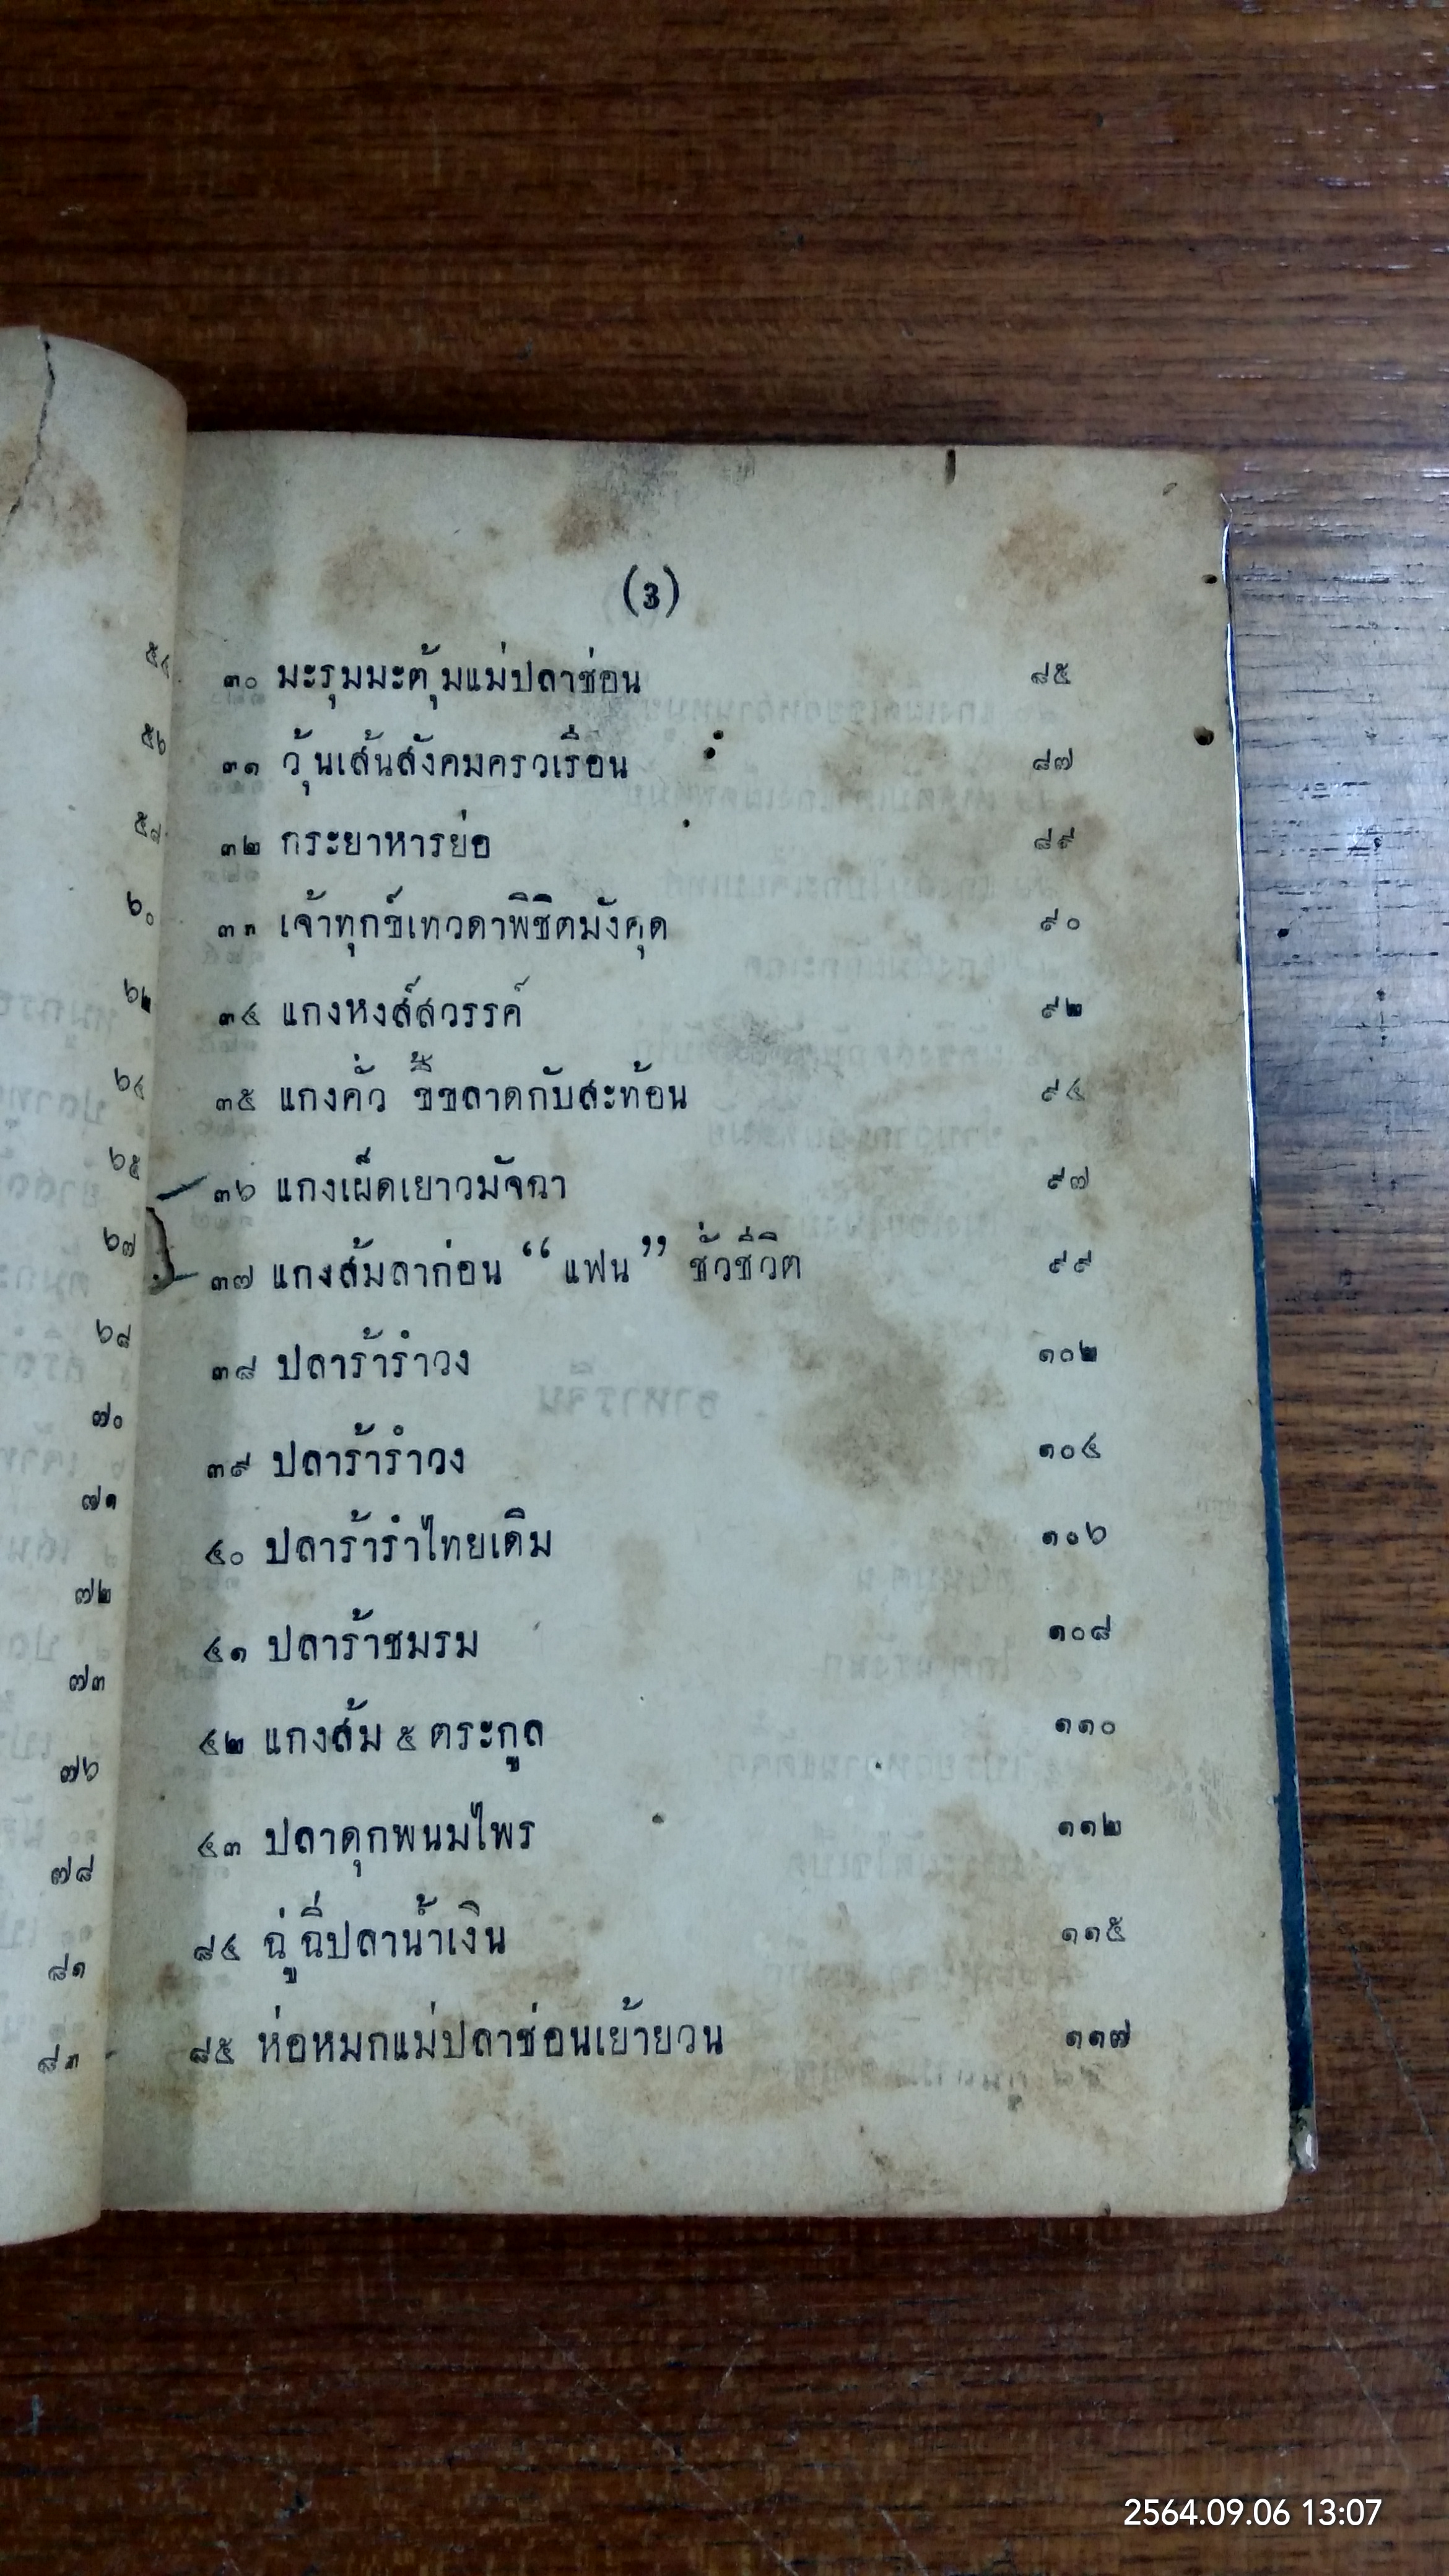 (3)
๓๐ มะรุมมะตุ้มแม่ปลาช่อน ๘๕
๓๑ วุ้นเส้นสังคมครวเรือน ๘๗
๓๒ กระยาหารย่อ ๘๙
๓๓ เจ้าทุกข์เทวดาพิชิตมังคุด ๙๐
๓๔ แกงหงส์สวรรค์ ๙๒
๓๕ แกงคั่ว ขี้ขลาดกับสะท้อน ๙๔
๓๖ แกงเผ็ดเยาวมัจฉา ๙๗
๓๗ แกงส้มลาก่อน “แฟน” ชั่วชีวิต ๙๙
๓๘ ปลาร้ารำวง ๑๐๒
๓๙ ปลาร้ารำวง ๑๐๔
๔๐ ปลาร้ารำไทยเดิม ๑๐๖
๔๑ ปลาร้าชมรม ๑๐๘
๔๒ แกงส้ม ๕ ตระกูล ๑๑๐
๔๓ ปลาดุกพนมไพร ๑๑๒
๘๔ ฉู่ฉี่ปลาน้ำเงิน ๑๑๕
๘๕ ห่อหมกแม่ปลาช่อนเย้ายวน ๑๑๗
๕๖
๖๐
๖๒
๖๔
๖๕
๖๗
๖๘
๗๐
๗๑
๗๒
๗๓
๗๖
๗๘
๘๑
๘๓
2564.09.06 13:07